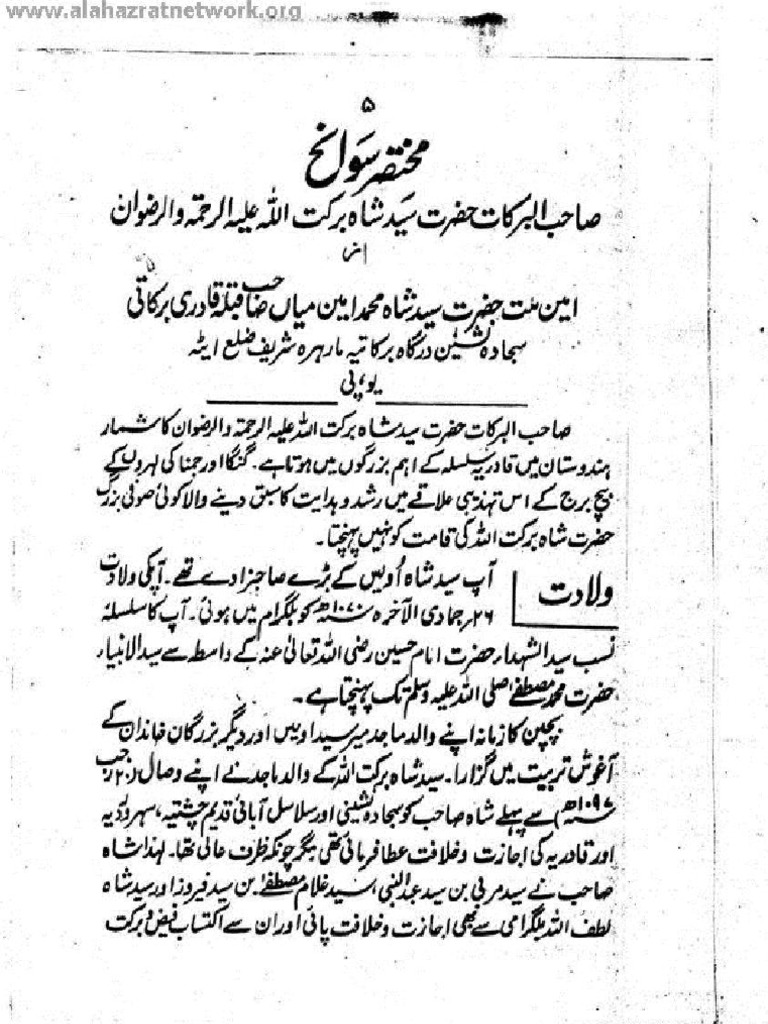 www.alahazratnetwork.org
۵
مختصر سوانح
صاحب البرکات حضرت سید شاہ برکت اللہ علیہ الرحمۃ والرضوان
از
امین ملت حضرت سید شاہ محمد امین میاں صاحب قبلہ قادری برکاتی
سجادہ نشین درگاہ برکاتیہ مارہرہ شریف ضلع ایٹہ
یو، پی
صاحب البرکات حضرت سید شاہ برکت اللہ علیہ الرحمۃ والرضوان کا شمار
ہندوستان میں قادریہ سلسلہ کے اہم بزرگوں میں ہوتا ہے۔ گنگا اور جمنا کی لہروں کے
بیچ برج کے اس تہذیبی علاقے میں رشد و ہدایت کا سبق دینے والا کوئی صوفی بزرگ
حضرت شاہ برکت اللہ کی قامت کو نہیں پہنچتا۔
ولادت
آپ سید شاہ اُویس کے بڑے صاحبزادے تھے۔ آپکی ولادت
۲۶؍ جمادی الآخرہ ۱۰۷۰ھ کو بلگرام میں ہوئی۔ آپ کا سلسلۂ
نسب سید الشہداء حضرت امام حسین رضی اللہ تعالیٰ عنہ کے واسطہ سے سید الانبیاء
حضرت محمد مصطفےٰ صلی اللہ علیہ وسلم تک پہنچتا ہے۔
بچپن کا زمانہ اپنے والد ماجد میر سید اویس اور دیگر بزرگان خاندان کے
آغوش تربیت میں گزارا۔ سید شاہ برکت اللہ کے والد ماجد نے اپنے وصال (۲۰ رجب
۱۰۹۷ھ) سے پہلے شاہ صاحب کو سجادہ نشینی اور سلاسل آبائی قدیم چشتیہ، سہروردیہ
اور قادریہ کی اجازت و خلافت عطا فرمائی تھی مگر چونکہ ظرف عالی تھا۔ لہٰذا شاہ
صاحب نے سید مربی بن سید عبدالنبی، سید غلام مصطفےٰ بن سید فیروز اور سید شاہ
لطف اللہ بلگرامی سے بھی اجازت و خلافت پائی اور ان سے اکتساب فیض و برکت